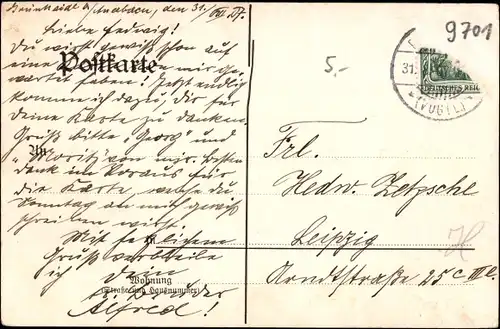 den 31.
Liebe Hedwig!
Du wirst gewiß schon auf
eine von mir ge-
wartet haben! Jetzt endlich
komme ich dazu, Dir für
Deine Karte zu danken.
Grüß bitte „Georg" und
„Moritz" von mir. Besten
Dank im Voraus für
die Karte, welche du
Sonntag an mich gewiß
schreiben wirst.
Mit herzlichem
Gruß verbleibe
ich Dein
Bruder
Alfred!
Postkarte
An
Wohnung
(Straße und Hausnummer)
5.-
9701
31.
DEUTSCHES REICH
(VOGTL.)
Frl.
Hedw. Zetzsche
Leipzig
Arndtstraße 25c III.
H